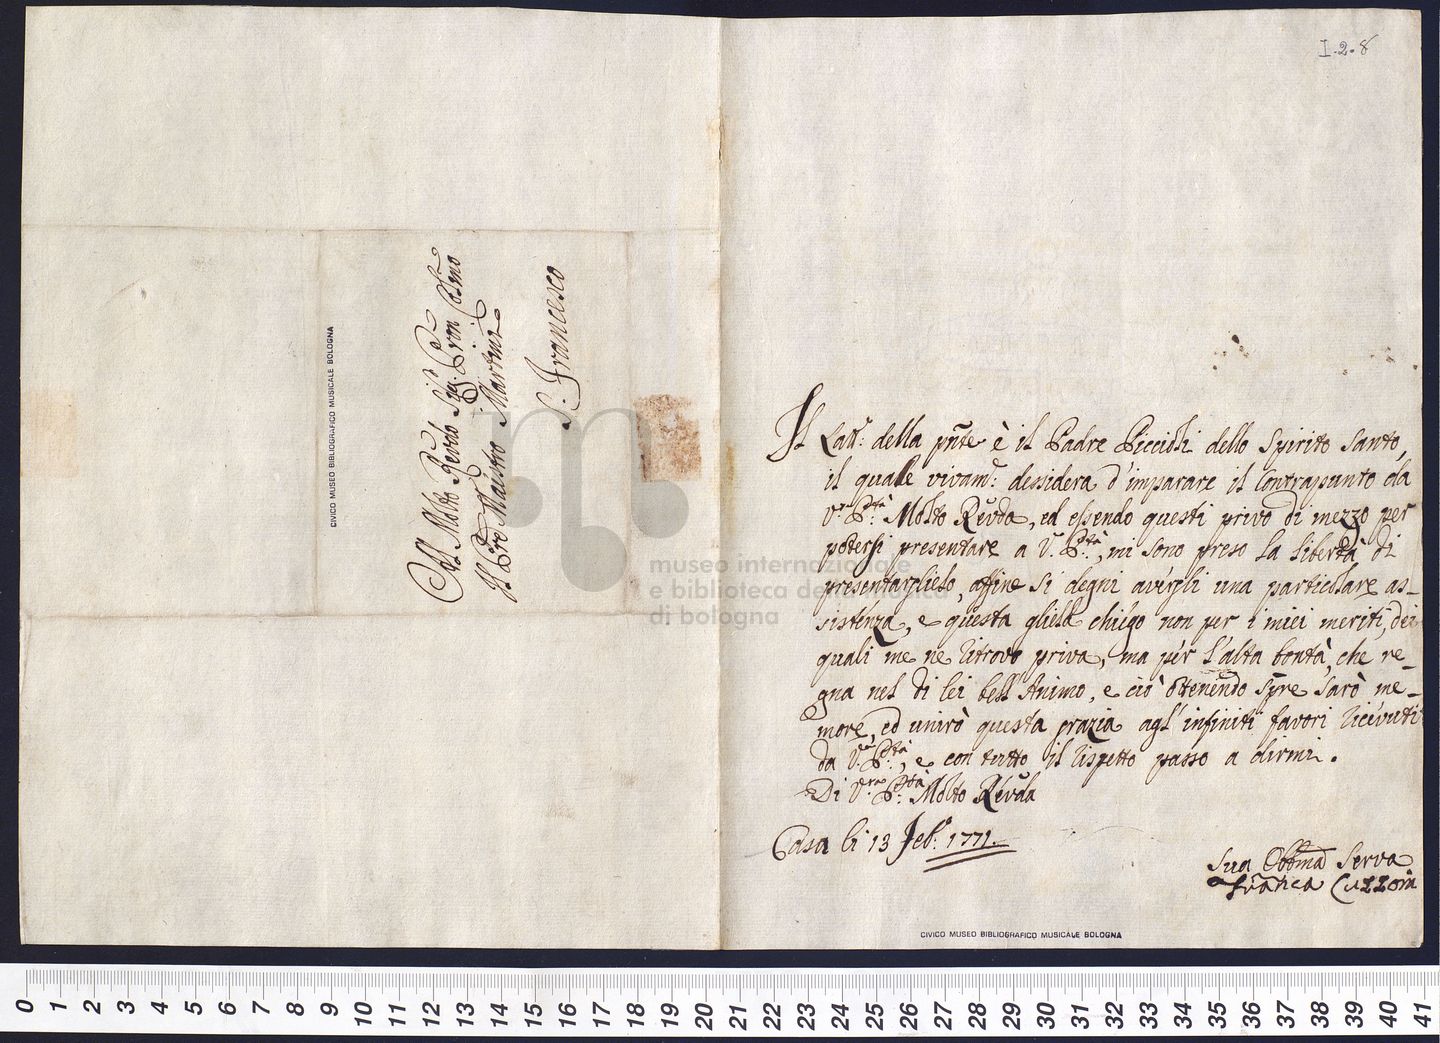 I.2.8
Il Latt.e della pñte è il Padre Piccioli dello Spirito Santo,
il quale vivam.e dessidera d'imparare il Contrapunto da
V.ra P.tà Molto Reũda, ed essendo questi privo di mezzo per
potersi presentare a V.a P.tà, mi sono preso la libertà di
presentarglielo, affine si degni avérgli una particolare as=
sisténza, e questa gliela chiégo non per i miei meriti, dei
quali me ne ritrovo priva, ma pér l'alta bontà, che re=
gna nel di lei bell'Animo, e ciò ottenendo sp̃re sarò me=
more, ed unirò questa grazia agl'infiniti favori ricévuti
da V.ra P.tà, e con tutto il rispetto passo a dirmi.
Di V.ra P.tà Molto Reũda
Casa li 13 Feb.o 1771.
Sua Obb̃ma Serva
Frañca Cuzzoni
CIVICO MUSEO BIBLIOGRAFICO MUSICALE BOLOGNA
Al Molto Reũdo Sig.r
Il P̃re Maestro Martini
S. Francesco
CIVICO MUSEO BIBLIOGRAFICO MUSICALE BOLOGNA
museo internazionale
e biblioteca della musica
di bologna
0 1 2 3 4 5 6 7 8 9 10 11 12 13 14 15 16 17 18 19 20 21 22 23 24 25 26 27 28 29 30 31 32 33 34 35 36 37 38 39 40 41